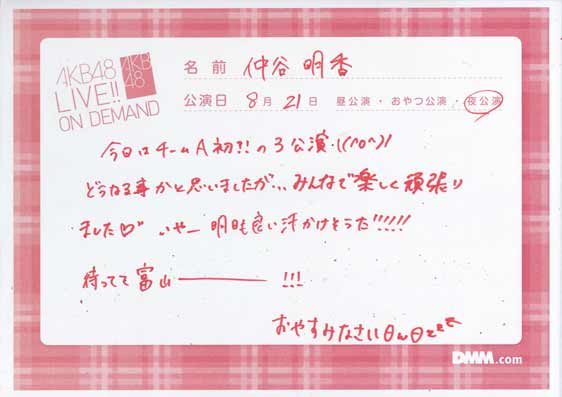 AKB48
LIVE!!
ON DEMAND
AKB
48
名前 仲谷明香
公演日 8月21日 昼公演・おやつ公演・夜公演
今日はチームA初!!の3公演!((^o^)!
どうなる事かと思いましたが、、みんなで楽しく頑張り
ました♡ いやー 明日も良い汗かけそうだ!!!!!
待ってて富山ー!!!
おやすみなさい
DMM.com